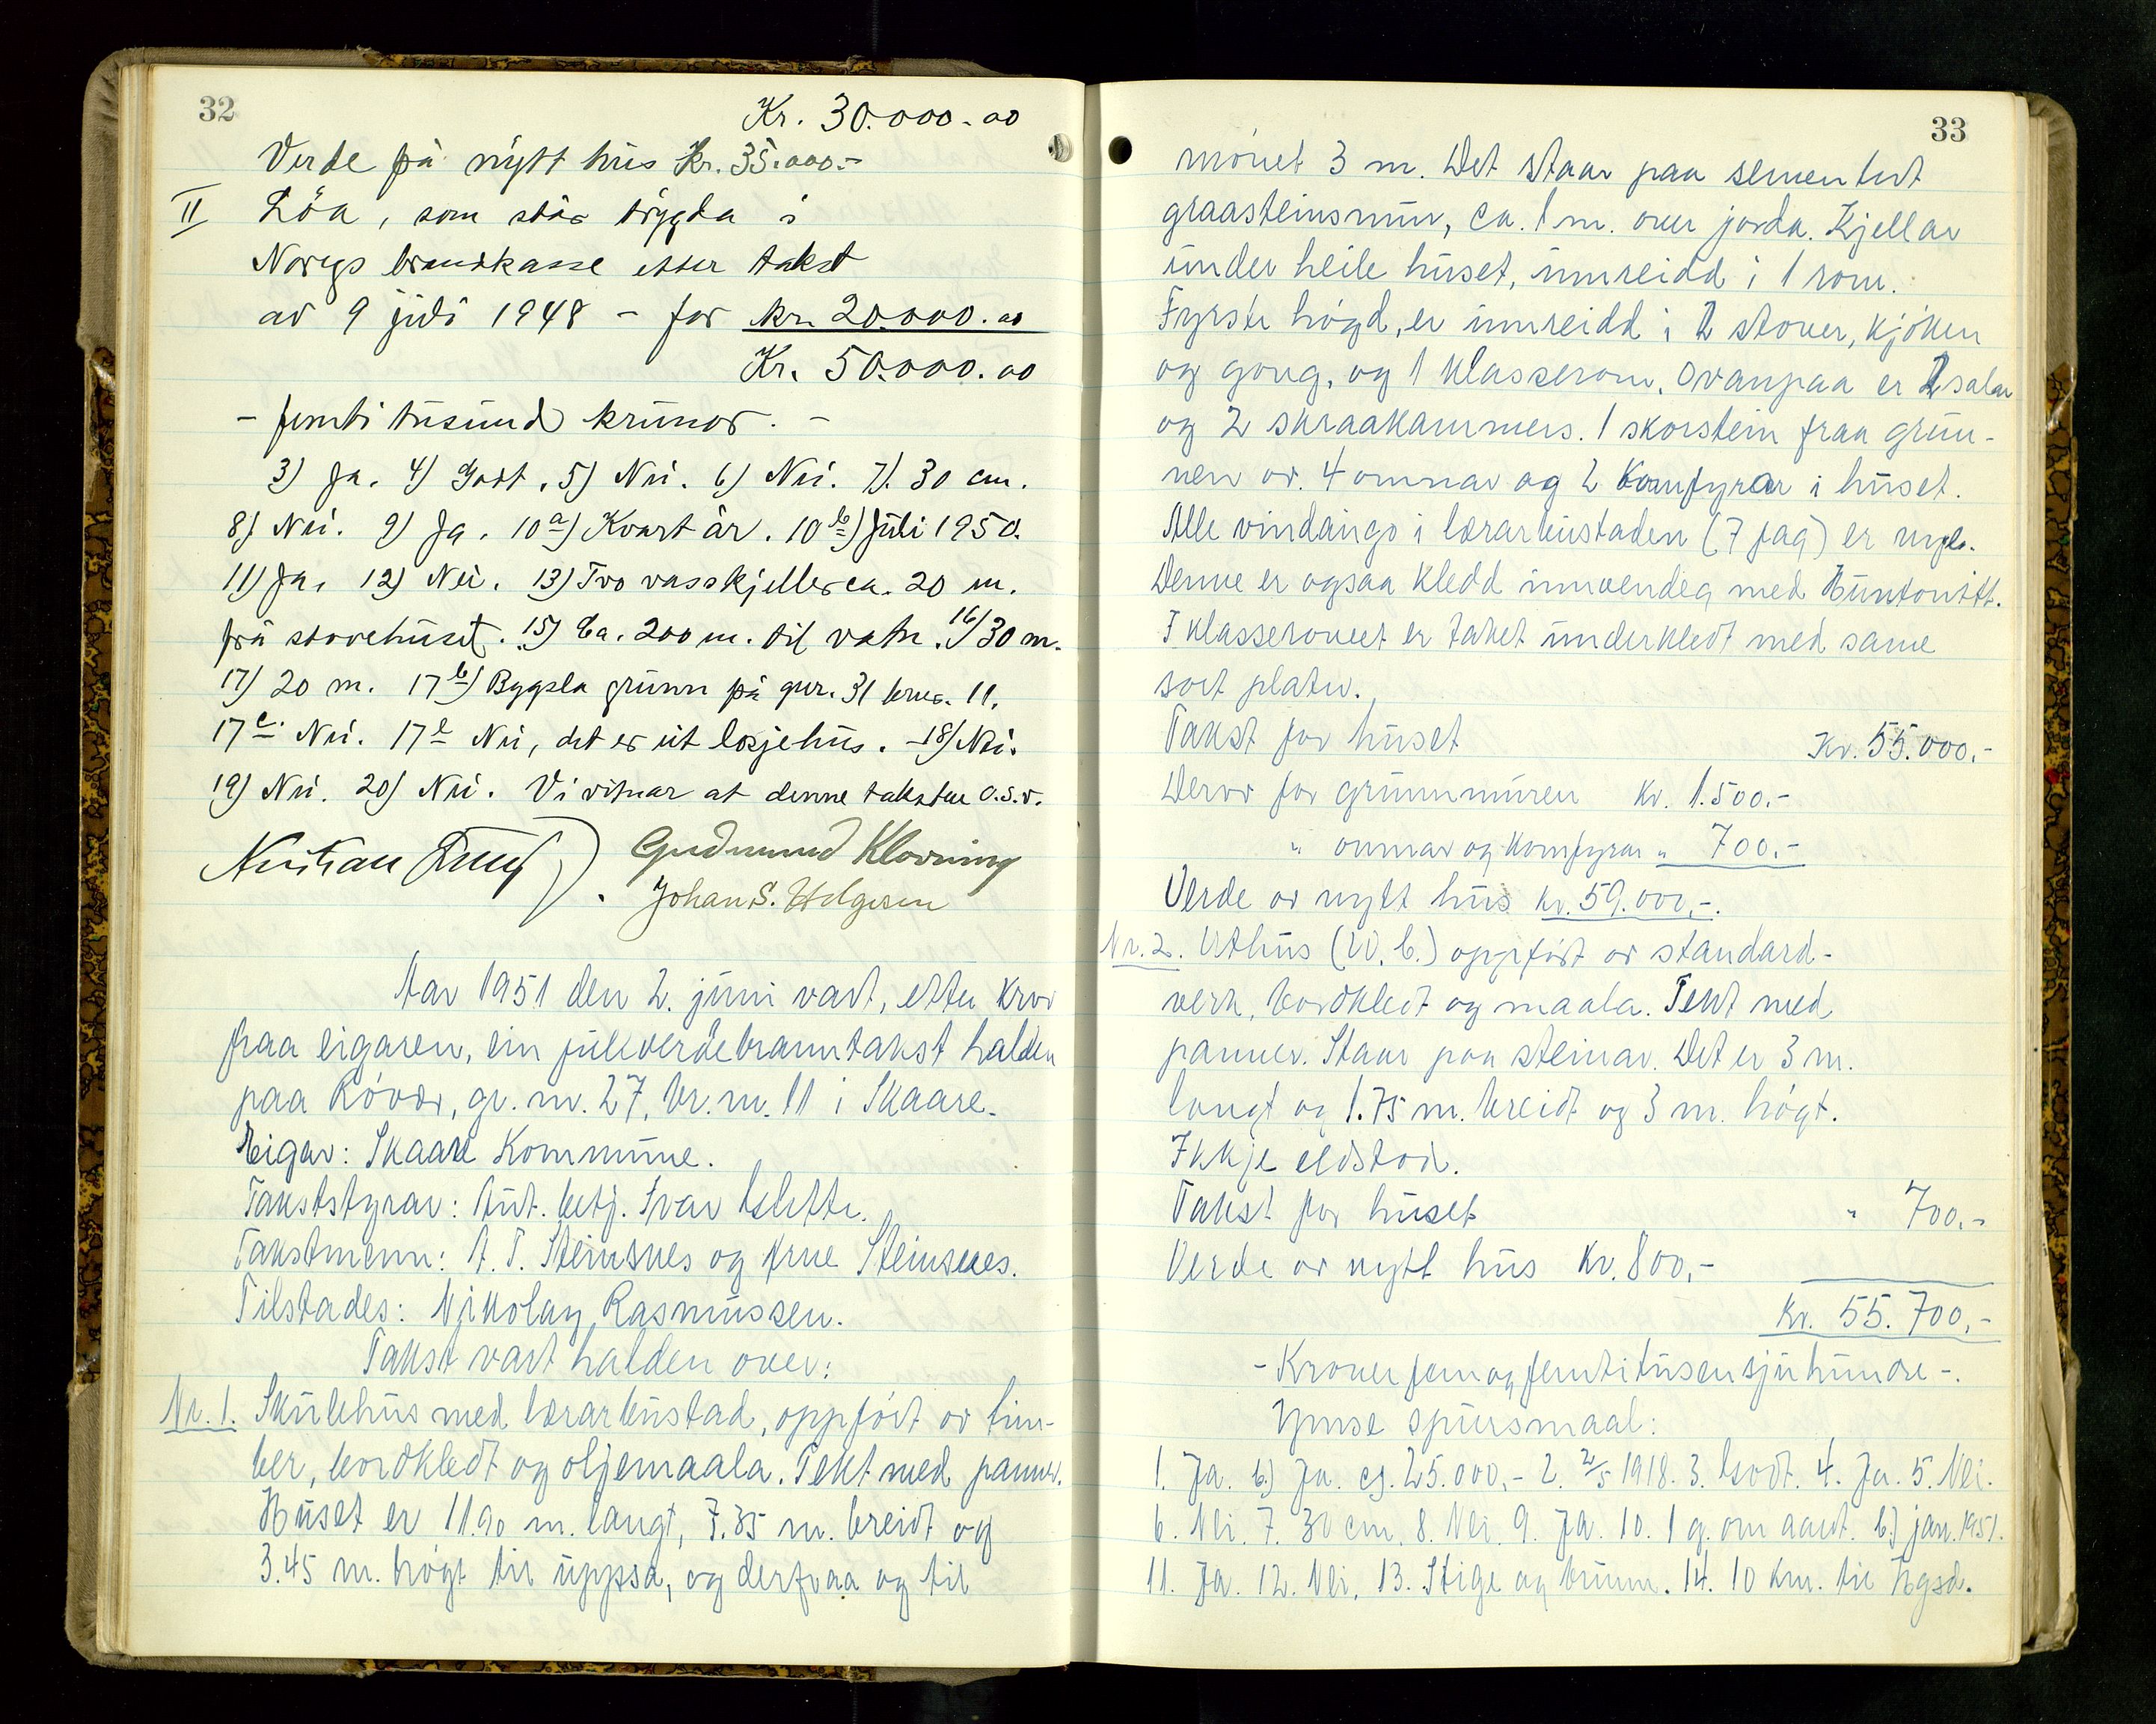 32
Kr. 30.000.00
Verde på nytt hus Kr. 35.000.-
II Löa, som står trygda i
Noregs brandkasse etter takst
av 9 juli 1948 - for kr. 20.000.00
Kr. 50.000.00
- femti tusund krunor. -
3) Ja. 4) Godt. 5) Nei. 6) Nei. 7). 30 cm.
8) Nei. 9) Ja. 10a) Kvart år. 10b) Juli 1950.
11) Ja. 12) Nei. 13) Tvo vasskjelder ca. 20 m.
frå stovehuset. 15) Ca. 200 m. til vatn. 16) 30 m.
17) 20 m. 17b) Bygsla grunn på gnr. 31 brnr. 11.
17c. Nei. 17e Nei, det er eit losjehus. - 18) Nei.
19) Nei. 20) Nei. Vi vitnar at denne taksten o.s.v.
Gudmund Klovning
Johan S. Helgesen
Aar 1951 den 2. juni vart, etter krav
fraa eigaren, ein fullverdebranntakst halden
paa Røvær, gr. nr. 27, br. nr. 11 i Skaare.
Eigar: Skaare Kommune.
Takststyrar: Aut. betj. Ivar Eslette.
Takstmenn: A. T. Steinsnes og Arne Steinsnes.
Tilstades: Nikolay Rasmussen.
Takst vart halden over:
Nr. 1. Skulehus med lærarbustad, oppført av tim-
ber, bordkledt og oljemaala. Tekt med panner.
Huset er 11.90 m. langt, 7.35 m. breidt og
3.45 m. høgt til uppsa, og derfraa og til
33
mønet 3 m. Det staar paa sementert
graasteinsmur, ca. 1 m. over jorda. Kjellar
under heile huset, innreidd i 1 rom.
Fyrste høgd, er innreidd i 2 stover, kjøken
og gong, og 1 klasserom. Ovanpaa er 2 salar
og 2 skraakammers. 1 skorstein fraa grun-
nen av. 4 omnar og 2 komfyrar i huset.
Alle vindaugo i lærarbustaden (7 fag) er nye.
Denne er ogsaa kledd innvendeg med Huntonitt.
I klasseromet er taket underkledt med same
sort plater.
Takst for huset Kr. 55.000.-
Derav for grunnmuren Kr. 1.500.-
" omnar og komfyrar " 700.-
Verde av nytt hus kr. 59.000.-.
Nr. 2. Uthus (W. C.) oppført av standard-
verk, bordkledt og maala. Tekt med
panner. Staar paa steinar. Det er 3 m.
langt og 1.75 m. breidt og 3 m. høgt.
Ikkje eldstad.
Takst for huset " 700.-
Verde av nytt hus Kr. 800,-
Kr. 55.700,-
- Kroner fem og femti tusen sju hundre -.
Ymse spursmaal:
1. Ja. b.) Ja. c). 25.000,- 2. 2/5 1918. 3. Godt. 4. Ja. 5. Nei.
6. Nei. 7. 30 cm. 8. Nei. 9. Ja. 10. 1 g. om aaret. b.) jan. 1951.
11. Ja. 12. Nei. 13. Stige og brunn. 14. 10 km. til Hgsd.